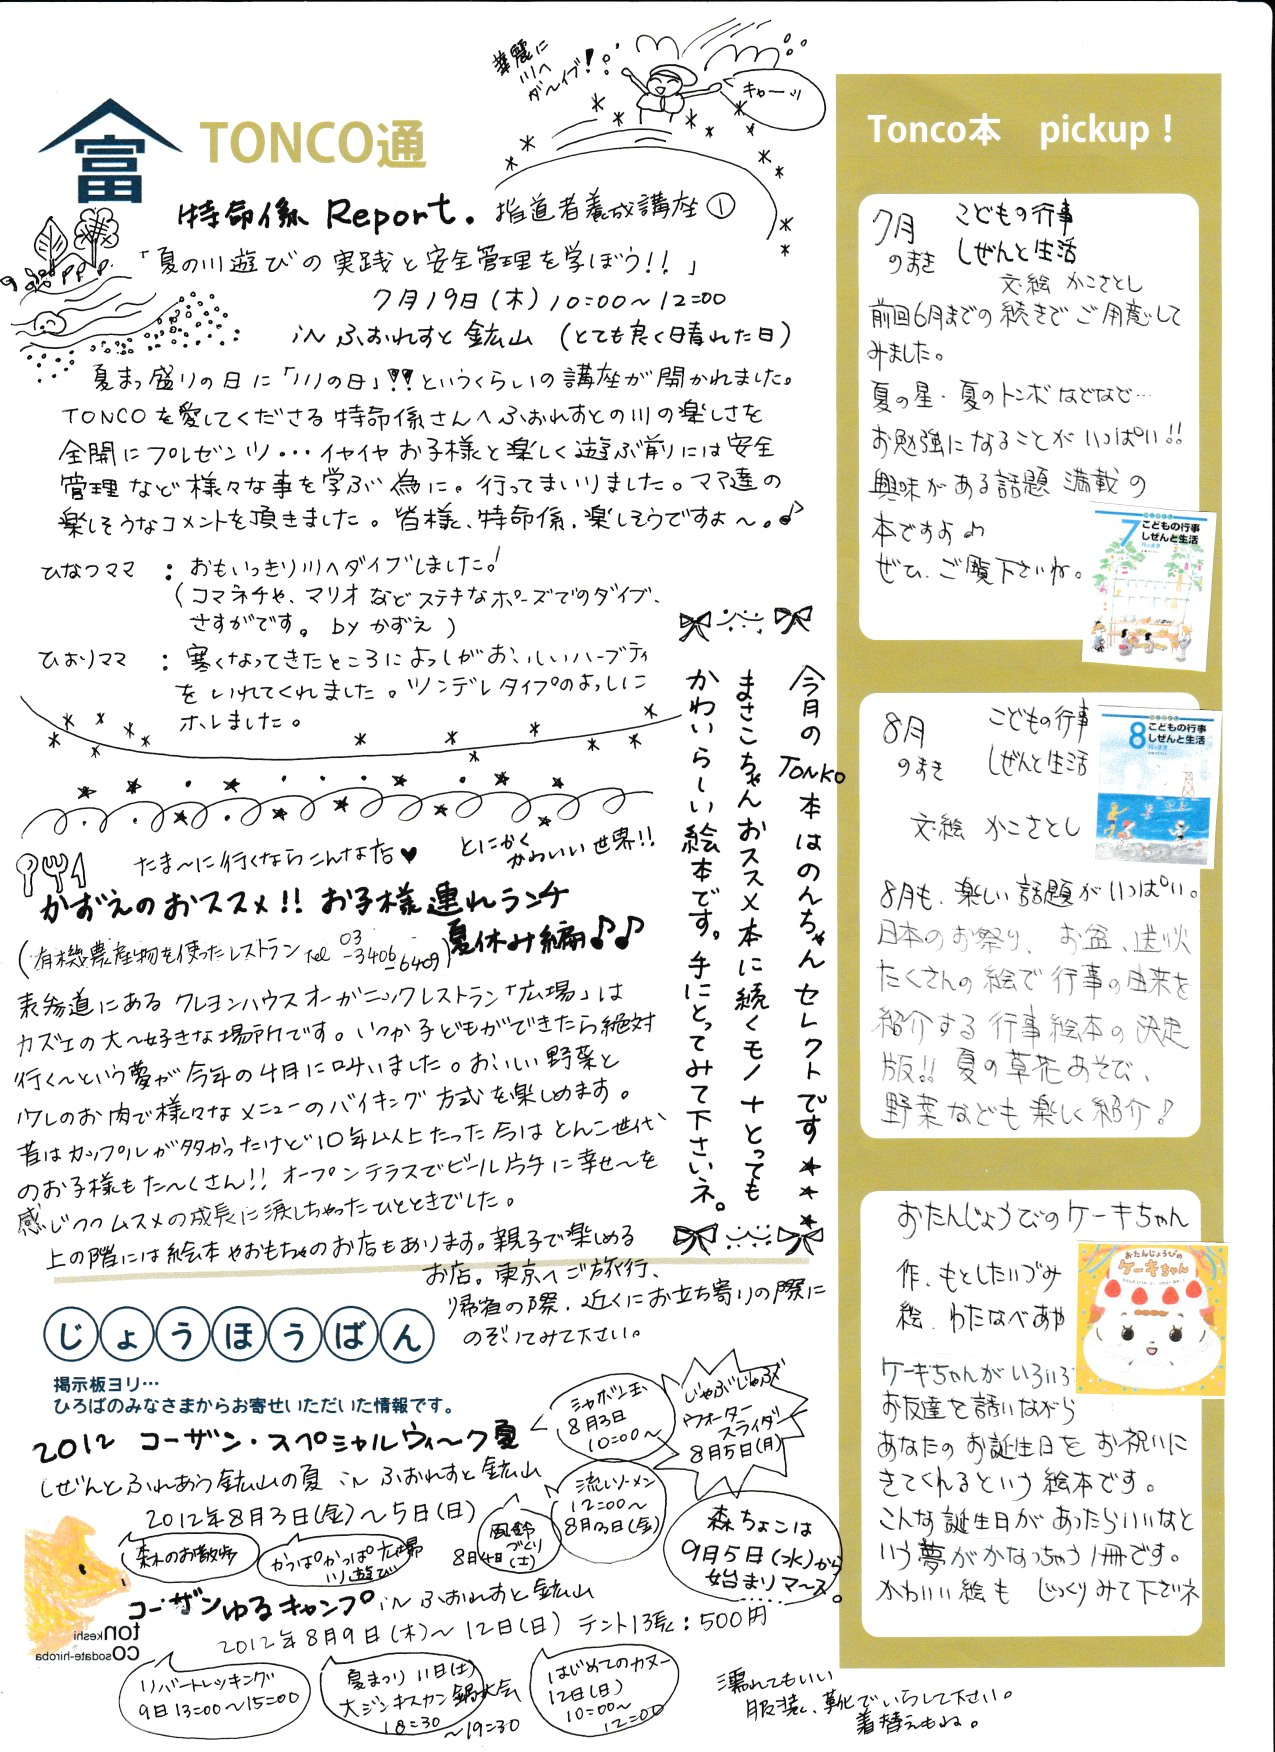 華麗に
川へ
ダ〜イブ!
キャーッ
富
TONCO通
特命係 Report. 指導者養成講座①
「夏の川遊びの実践と安全管理を学ぼう!!」
7月19日(木) 10:00〜12:00
in ふぉれすと鉱山 (とても良く晴れた日)
夏まっ盛りの日に「川の日」!!というくらいの講座が開かれました。
TONCOを愛してくださる特命係さんへふぉれすとの川の楽しさを
全開にプレゼンツ・・・イヤイヤお子様と楽しく遊ぶ前には安全
管理など様々な事を学ぶ為に。行ってまいりました。ママ達の
楽しそうなコメントを頂きました。皆様、特命係、楽しそうですよ〜。♪
ひなつママ : おもいっきり川へダイブしました!
(コマネチや、マリオなどステキなポーズでのダイブ、
さすがです。by かずえ)
ひおりママ : 寒くなってきたところによっしがおいしいハーブティ
をいれてくれました。ツンデレタイプのよっしに
ホレました。
今月のTONKO本はのんちゃんセレクトです
まさこちゃんおススメ本に続くモノ ナとっても
かわいらしい絵本です。手にとってみて下さいネ。
たま〜に行くならこんな店♥
とにかく
かわいい世界!!
かずえのおススメ!! お子様連れランチ
夏休み編♪♪
(有機農産物を使ったレストラン Tel 03-3406-6409)
表参道にあるクレヨンハウスオーガニックレストラン「広場」は
カズエの大〜好きな場所です。いつか子どもができたら絶対
行く〜という夢が今年の4月に叶いました。おいしい野菜と
少しのお肉で様々なメニューのバイキング方式を楽しめます。
昔はカップルが多かったけど10年以上たった今はとんこ世代
のお子様もた〜くさん!! オープンテラスでビール片手に幸せ〜を
感じつつムスメの成長に涙しちゃったひとときでした。
上の階には絵本やおもちゃのお店もあります。親子で楽しめる
お店。東京へご旅行、
帰省の際、近くにお立ち寄りの際に
のぞいてみて下さい。
じょうほうばん
掲示板ヨリ…
ひろばのみなさまからお寄せいただいた情報です。
2012 コーザン・スペシャルウィーク夏
しぜんとふれあう鉱山の夏 in ふぉれすと鉱山
2012年8月3日(金)〜5日(日)
シャボン玉
8月3日
10:00〜
じゃぶじゃぶ
ウォーター
スライダー
8月5日(月)
流しソーメン
12:00〜
8月3日(金)
風鈴
づくり
8月4日(土)
森のお散歩
かっぱかっぱ広場
川遊び
森ちょこは
9月5日(水)から
始まりマース。
コーザンゆるキャンプ in ふぉれすと鉱山
2012年8月9日(木)〜12日(日) テント1張:500円
tonkeshi
COsodate-hiroba
リバートレッキング
9日13:00〜15:00
夏まつり 11日(土)
大ジンギスカン鍋大会
18:30
〜19:30
はじめてのカヌー
12日(日)
10:00〜
12:00
濡れてもいい
服装、靴でいらして下さい。
着替えもね。
Tonco本 pickup!
7月のまき
こどもの行事
しぜんと生活
文・絵 かこさとし
前回6月までの続きでご用意して
みました。
夏の星・夏のトンボなどなど…
お勉強になることがいっぱい!!
興味がある話題満載の
本ですよ♪
ぜひ、ご覧下さいね。
7
こどもの行事
しぜんと生活
8月のまき
こどもの行事
しぜんと生活
文・絵 かこさとし
8
こどもの行事
しぜんと生活
8月も、楽しい話題がいっぱい。
日本のお祭り、お盆、送り火
たくさんの絵で行事の由来を
紹介する行事絵本の決定
版!! 夏の草花あそび、
野菜なども楽しく紹介!
おたんじょうびのケーキちゃん
作、もとしたいづみ
絵、わたなべあや
おたんじょうびの
ケーキちゃん
ケーキちゃんがいろいろ
お友達を誘いながら
あなたのお誕生日をお祝いに
きてくれるという絵本です。
こんな誕生日があったらいいなと
いう夢がかなっちゃう1冊です。
かわいい絵も じっくりみて下さいネ